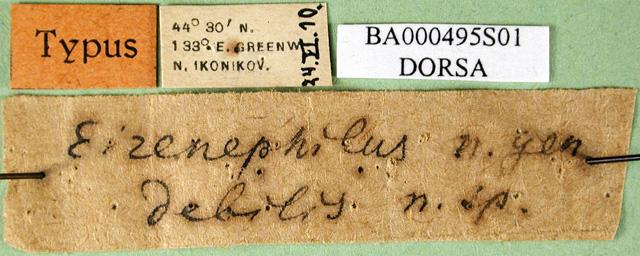 Typus
44° 30' N.
133° E. GREENW
N. IKONIKOV.
24.VI.10.
BA000495S01
DORSA
Eirenephilus n. gen
debilis n. sp.